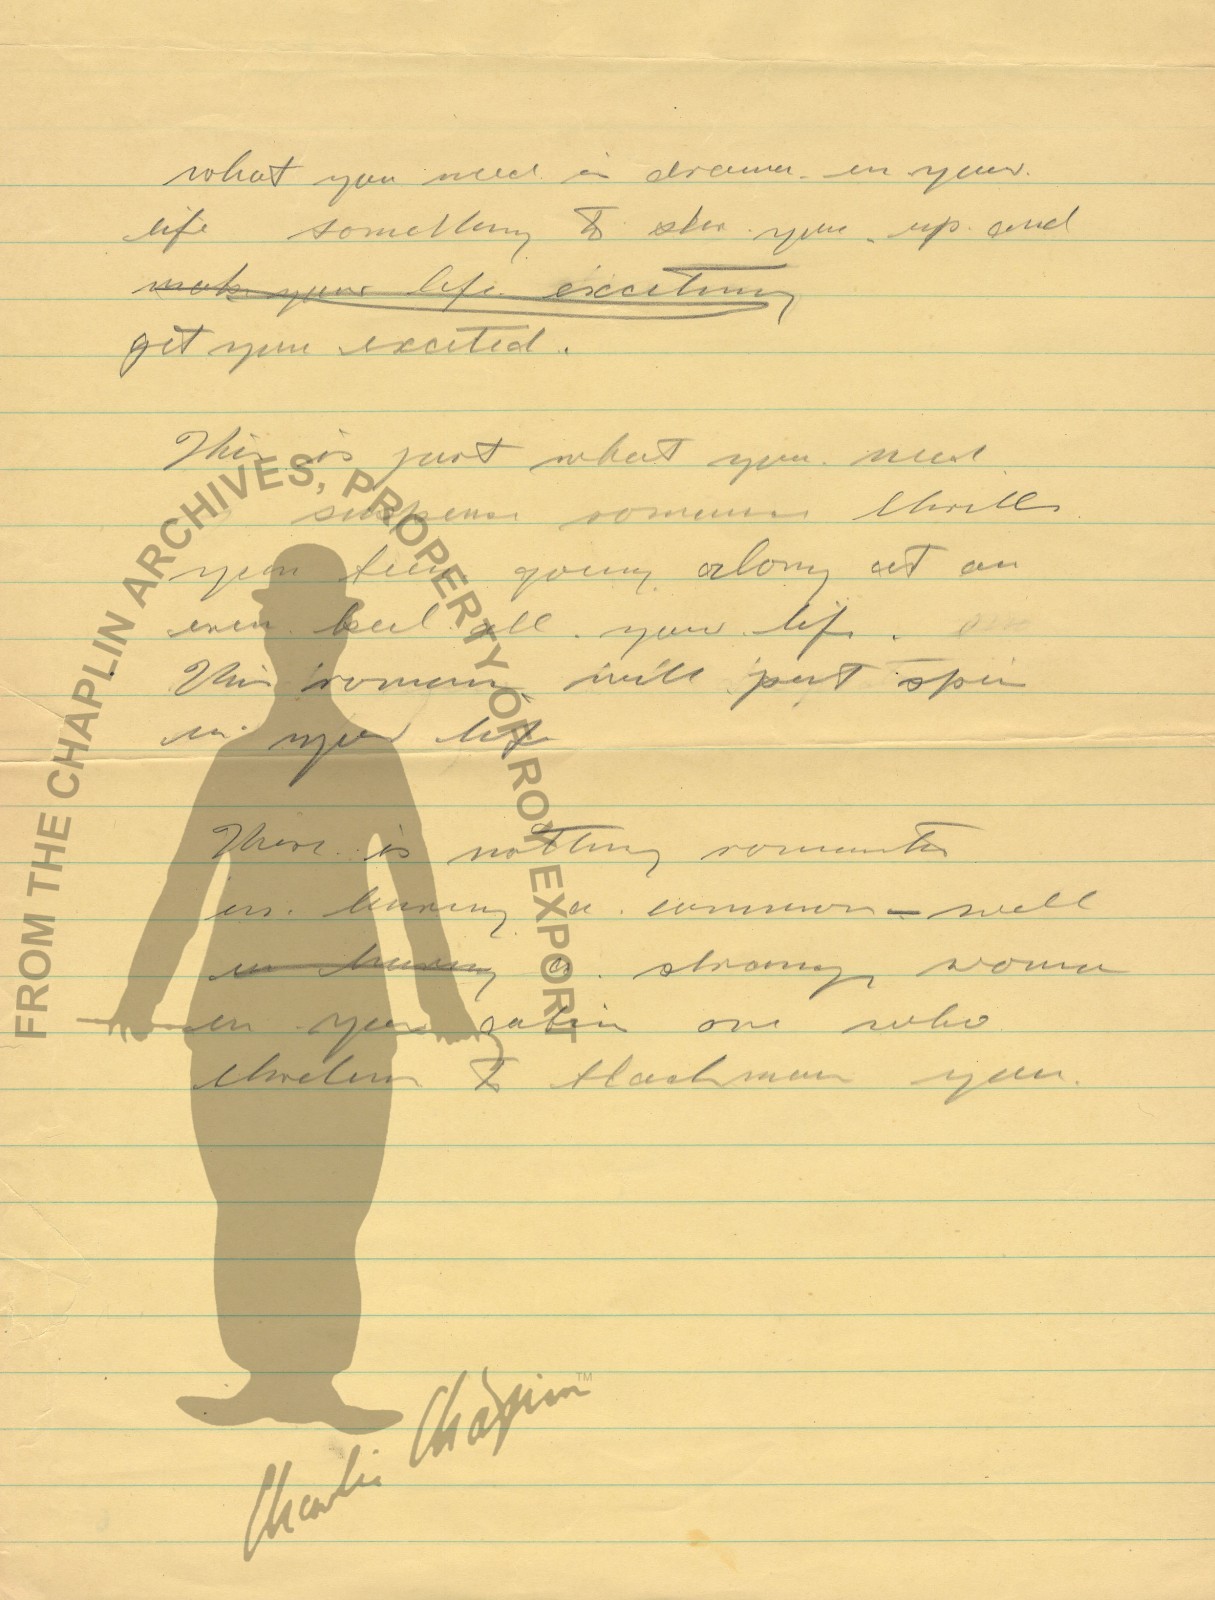 what you need is drama in your
life something to stir you up and
make your life exciting
get you excited.
This is just what you need
suspense romance thrills
your been going along at an
even keel all your life.
This romance will put spice
in your life
There is nothing romantic
in having a common - well
in having a strange woman
in your cabin one who
threatens to blackmail you.
FROM THE CHAPLIN ARCHIVES, PROPERTY OF ROY EXPORT
Charlie Chaplin™